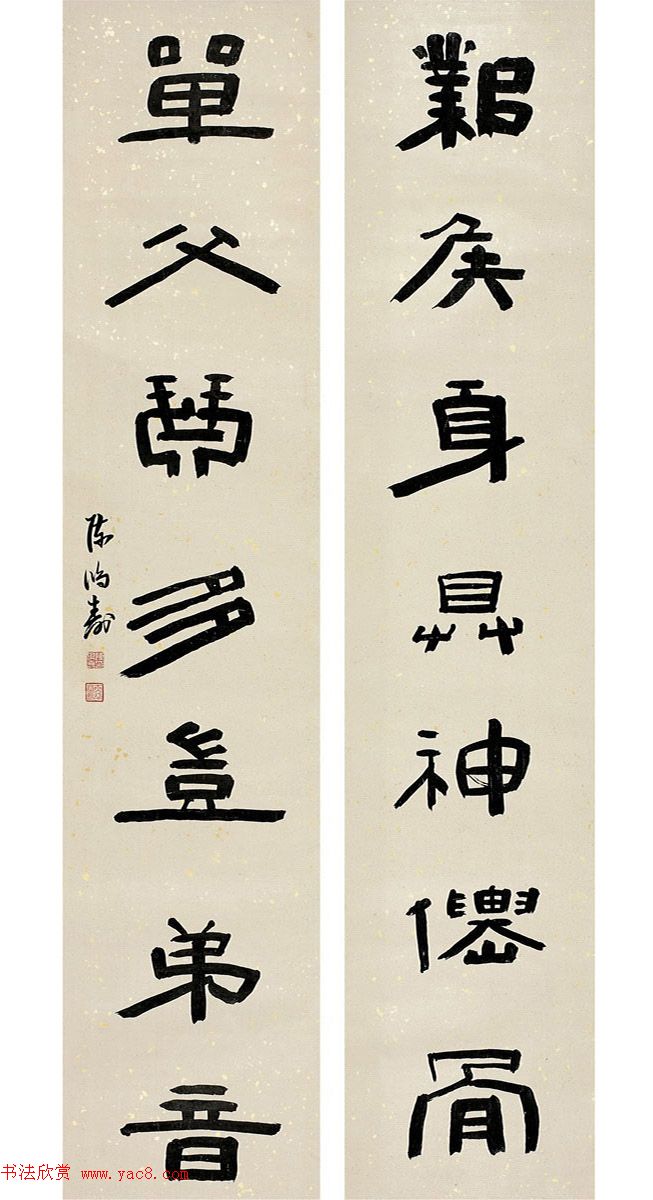 鄴侯身具神僊骨
單父琴多豈弟音
陳鴻壽
书法欣赏 www.yac8.com